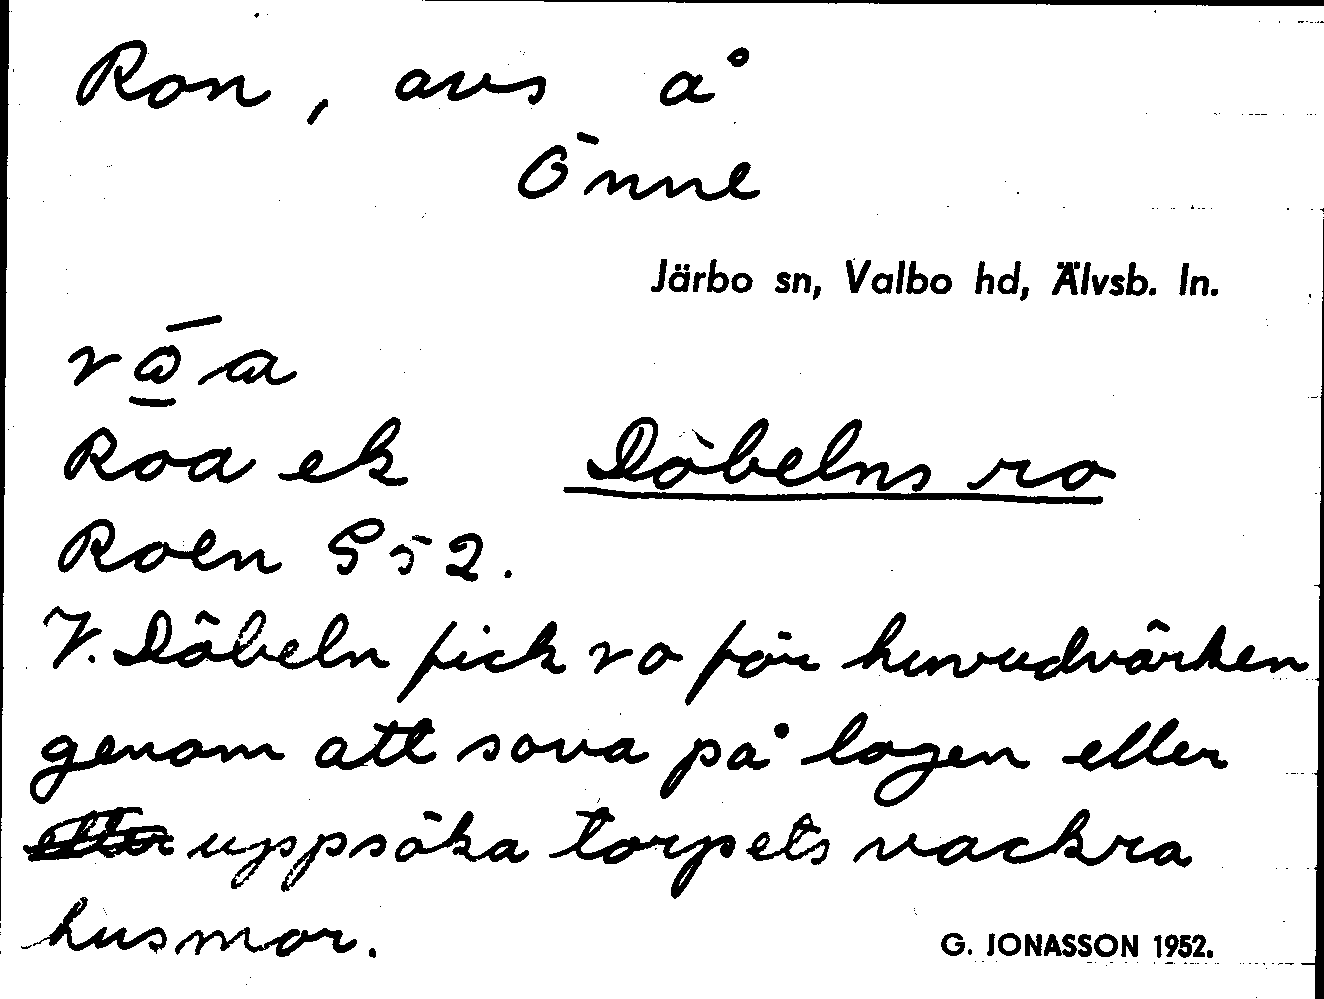 Ron, avs å
Önne
Järbo sn, Valbo hd, Älvsb. ln.
Roa ek Döbelns ro
Roen S52.
V. Döbeln fick ro för huvudvärken
genom att sova på logen eller
uppsöka torpets vackra
husmor.
G. JONASSON 1952.